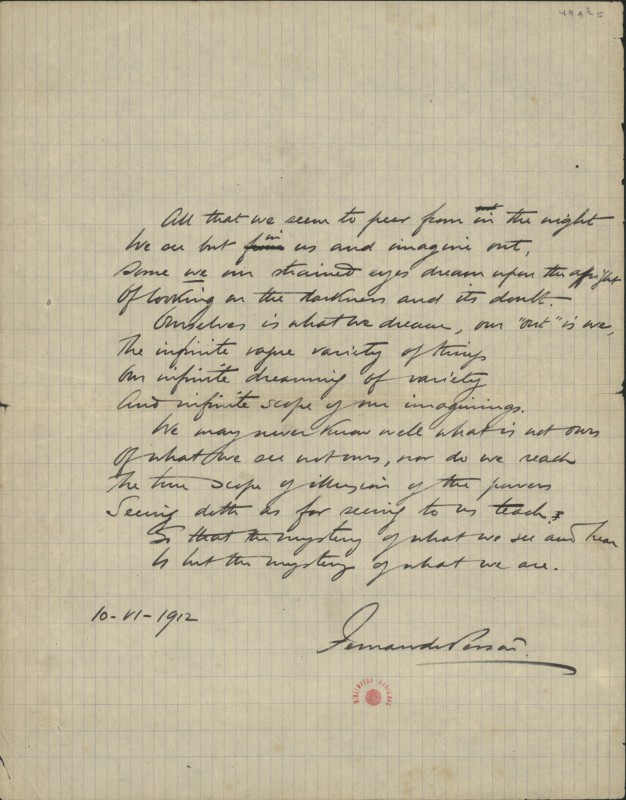 49A²5
All that we seem to peer from out in the night
We see but from in us and imagine out,
Some we our strained eyes dream upon the affright
Of looking on the darkness and its doubt.
Ourselves is what we dream, our "out" is we,
The infinite vague variety of things
Our infinite dreaming of variety
And infinite scope of our imaginings.
We may never know well what is not ours
Of what we see not ours, nor do we reach
The true scope of illusion of the powers
Seeing doth as for seeing to us teach.
So that the mystery of what we see and hear
Is but the mystery of what we are.
10-VI-1912
Fernando Pessoa.
BIBLIOTHECA NACIONAL